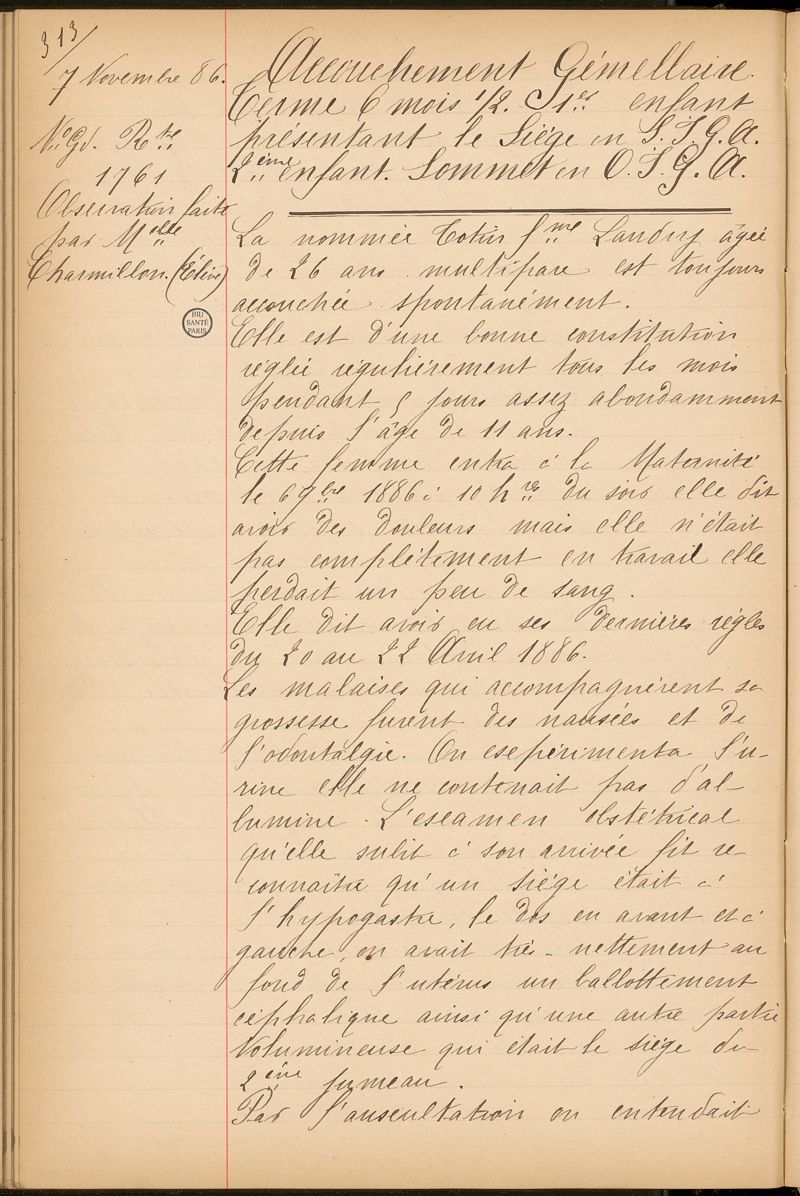 313/
7 Novembre 86.
No. Gd. Rtre
1761
Observation faite
par Melle
Charmillon. (Élève)
BIU
SANTÉ
PARIS
Accouchement Gémellaire.
Terme 6 mois 1/2. 1er enfant
présentant le Siège en S.I.G.A.
2ème enfant. Sommet en O.I.G.A.
La nommée Cotin fme Landry âgée
de 26 ans multipare est toujours
accouchée spontanément.
Elle est d'une bonne constitution
réglée régulièrement tous les mois
pendant 5 jours assez abondamment
depuis l'âge de 11 ans.
Cette femme entra à la Maternité
le 6 9bre 1886 à 10 hres du soir elle dit
avoir des douleurs mais elle n'était
pas complètement en travail elle
perdait un peu de sang.
Elle dit avoir eu ses dernières règles
du 20 au 22 Avril 1886.
Les malaises qui accompagnèrent sa
grossesse furent des nausées et de
l'odontalgie. On expérimenta l'u-
rine elle ne contenait pas d'al-
bumine. L'examen obstétrical
qu'elle subit à son arrivée fit re-
connaître qu'un siège était à
l'hypogastre, le dos en avant et à
gauche, on avait très-nettement au
fond de l'utérus un ballottement
céphalique ainsi qu'une autre partie
volumineuse qui était le siège du
2ème jumeau.
Par l'auscultation on entendait